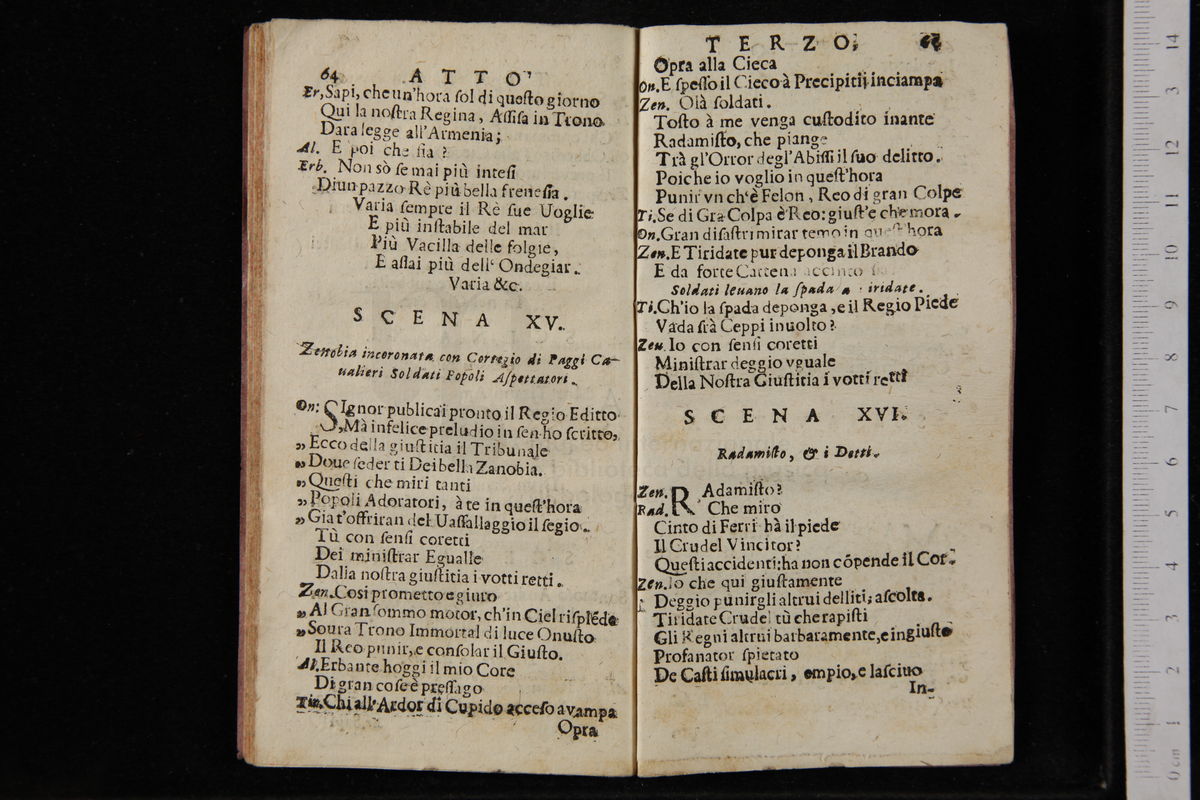 64 ATTO
Er, Sapi, che un'hora sol di questo giorno
Qui la nostra Regina, Assisa in Trono
Dara legge all'Armenia;
Al. E poi che sia?
Erb. Non sò se mai più intesi
Diun pazzo Rè più bella frenesia.
Varia sempre il Rè sue Uoglie
E più instabile del mar
Più Vacilla delle folgie,
E assai più dell' Ondegiar.
Varia &c.
SCENA XV.
Zenobia incoronata con Cortegio di Paggi Ca-
ualieri Soldati Popoli Aspettatori.
On: SIgnor publicai pronto il Regio Editto
„Mà infelice preludio in sen ho scritto,
„Ecco della giustitia il Tribunale
„Doue seder ti Dei bella Zanobia.
„Questi che miri tanti
„Popoli Adoratori, à te in quest'hora
„Gia t'offriran del Uassallaggio il segio.
Tù con sensi coretti
Dei ministrar Egualle
Dalla nostra giustitia i votti retti.
Zen. Cosi prometto e giuro
„Al Gran sommo motor, ch'in Ciel risplẽde
„Soura Trono Immortal di luce Onusto
Il Reo punir, e consolar il Giusto.
Al. Erbante hoggi il mio Core
Di gran cose è pressago
Tir. Chi all'Ardor di Cupido acceso avampa
Opra
TERZO;
Opra alla Cieca
On. E spesso il Cieco à Precipitij inciampa
Zen. Olà soldati.
Tosto à me venga custodito inante
Radamisto, che piange
Trà gl'Orror degl'Abissi il suo delitto.
Poiche io voglio in quest'hora
Punir vn ch'è Felon, Reo di gran Colpe
Ti. Se di Gra Colpa è Reo: giust'e che mora.
On. Gran disastri mirar temo in quest'hora
Zen. E Tiridate pur deponga il Brando
E da forte Cattena accinto
Soldati leuano la spada a iridate.
Ti. Ch'io la spada deponga, e il Regio Piede
Vada frà Ceppi inuolto?
Zen. Io con sensi coretti
Ministrar deggio vguale
Della Nostra Giustitia i votti retti
SCENA XVI.
Radamisto, & i Detti.
Zen. RAdamisto?
Rad. Che miro
Cinto di Ferri hà il piede
Il Crudel Vincitor?
Questi accidenti: ha non cõpende il Cor.
Zen. Io che qui giustamente
Deggio punir gli altrui delliti; ascolta.
Tiridate Crudel tù che rapisti
Gli Regni altrui barbaramente, e ingiusto
Profanator spietato
De Casti simulacri, empio, e lasciuo
In-